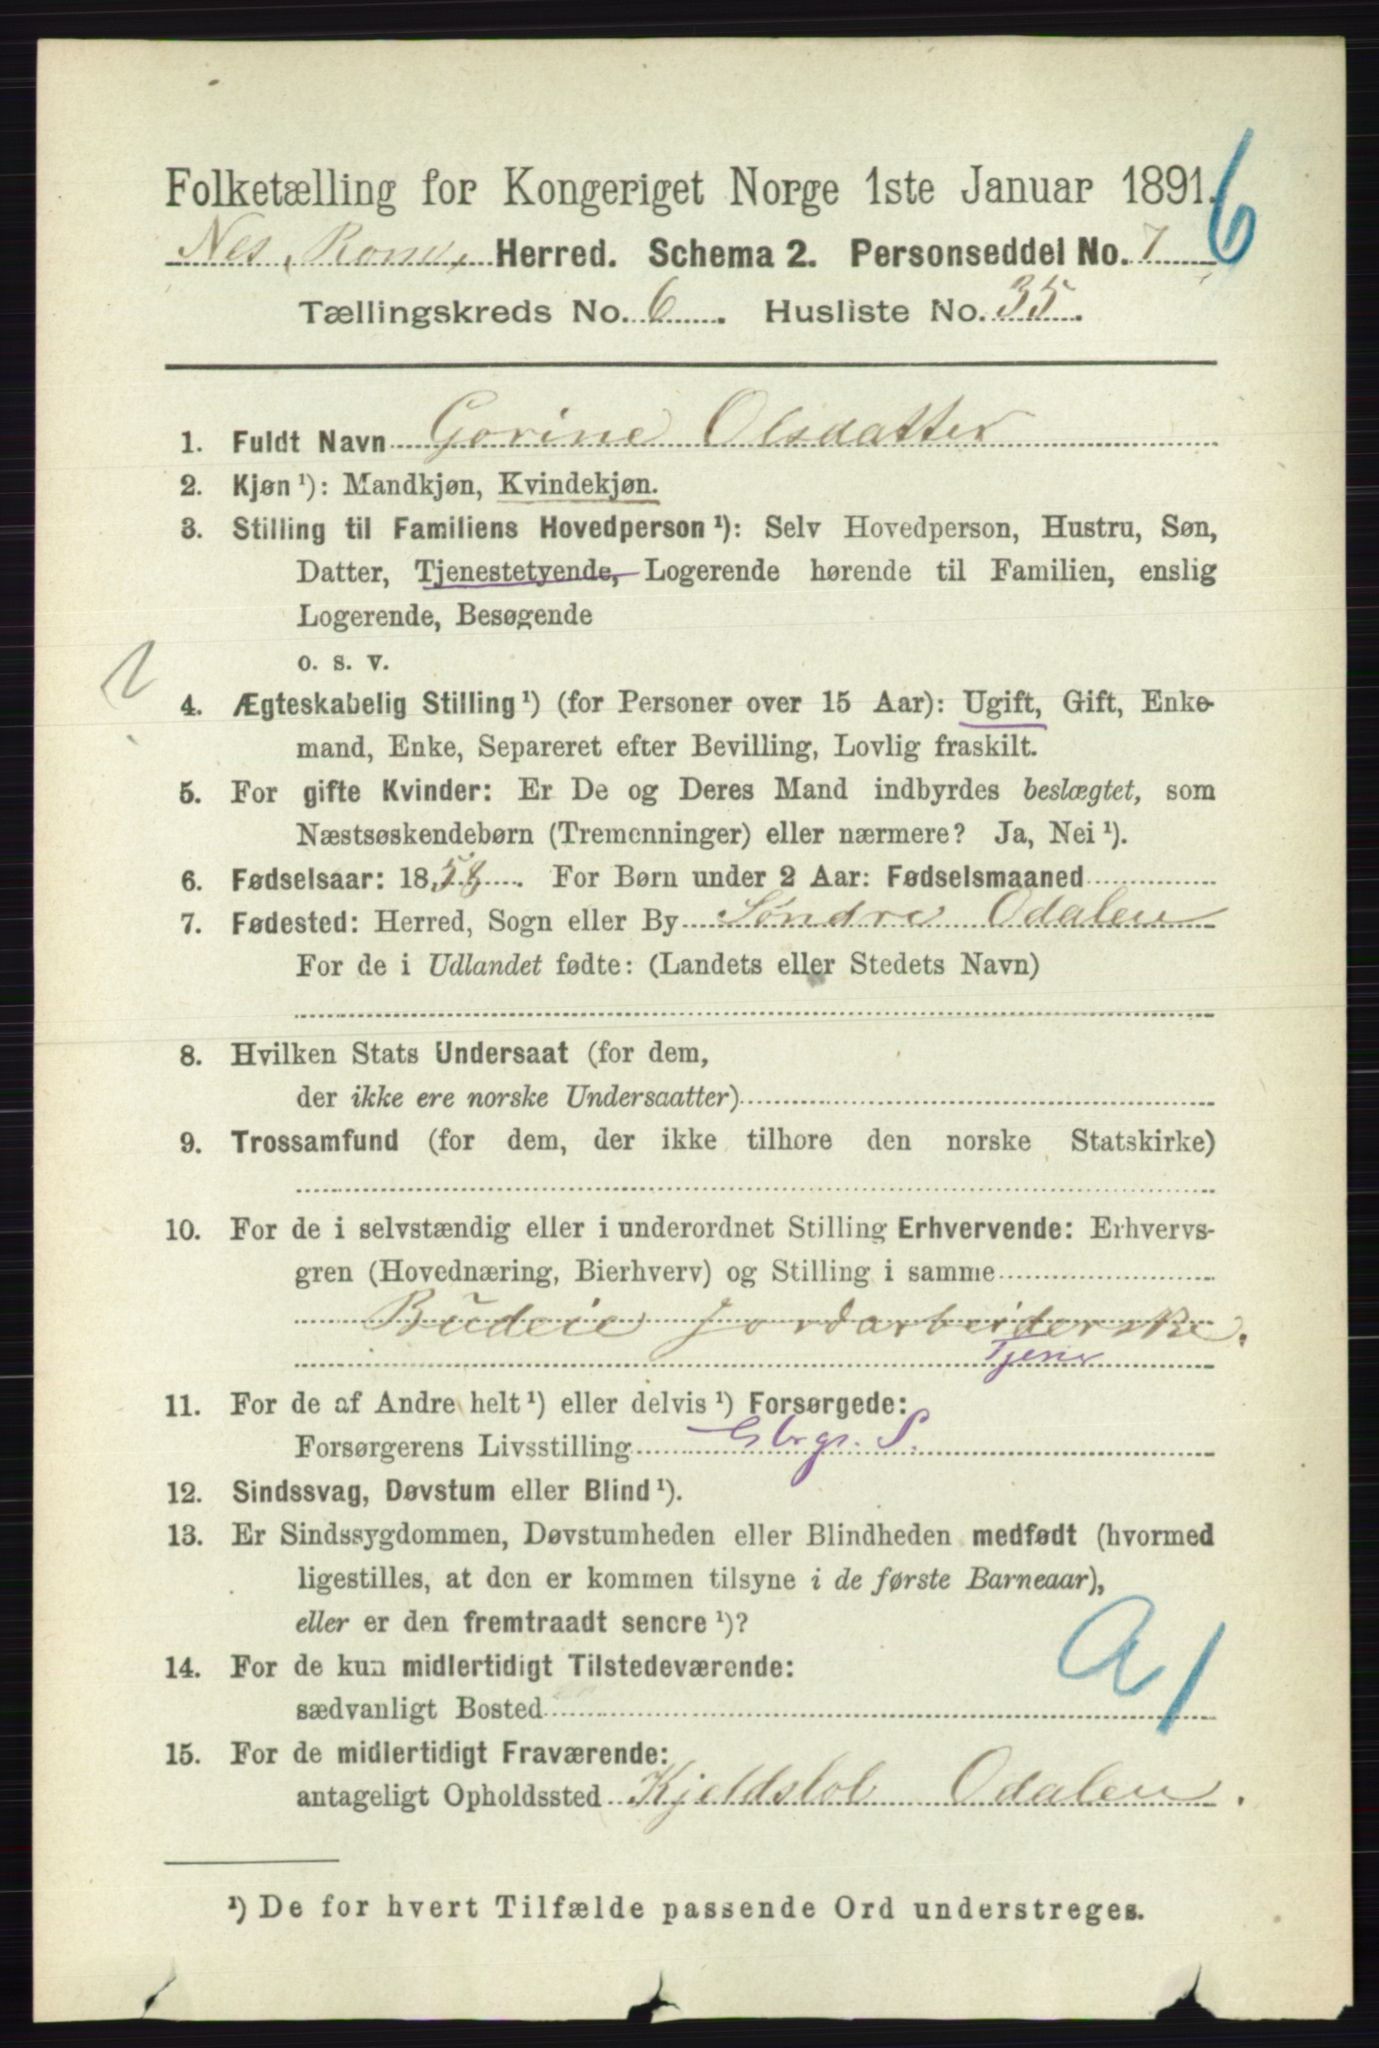 Folketælling for Kongeriget Norge 1ste Januar 1891.
6
Nes, Rom., Herred. Schema 2. Personseddel No. 7
Tællingskreds No. 6. Husliste No. 35.
1. Fuldt Navn Gorine Olsdatter
2. Kjøn ¹): Mandkjøn, Kvindekjøn.
3. Stilling til Familiens Hovedperson ¹): Selv Hovedperson, Hustru, Søn,
Datter, Tjenestetyende, Logerende hørende til Familien, enslig
Logerende, Besøgende
o. s. v.
4. Ægteskabelig Stilling ¹) (for Personer over 15 Aar): Ugift, Gift, Enke-
mand, Enke, Separeret efter Bevilling, Lovlig fraskilt.
5. For gifte Kvinder: Er De og Deres Mand indbyrdes beslægtet, som
Næstsøskendebørn (Tremenninger) eller nærmere? Ja, Nei ¹).
6. Fødselsaar: 1858. For Børn under 2 Aar: Fødselsmaaned
7. Fødested: Herred, Sogn eller By Søndre Odalen
For de i Udlandet fødte: (Landets eller Stedets Navn)
8. Hvilken Stats Undersaat (for dem,
der ikke ere norske Undersaatter)
9. Trossamfund (for dem, der ikke tilhøre den norske Statskirke)
10. For de i selvstændig eller i underordnet Stilling Erhvervende: Erhvervs-
gren (Hovednæring, Bierhverv) og Stilling i samme
Budeie Jordarbeiderske.
Tjener
11. For de af Andre helt ¹) eller delvis ¹) Forsørgede:
Forsørgerens Livsstilling Gbr. S.
12. Sindssvag, Døvstum eller Blind ¹).
13. Er Sindssygdommen, Døvstumheden eller Blindheden medfødt (hvormed
ligestilles, at den er kommen tilsyne i de første Barneaar),
eller er den fremtraadt senere ¹)?
14. For de kun midlertidigt Tilstedeværende:
sædvanligt Bosted
a 1
15. For de midlertidigt Fraværende:
antageligt Opholdssted Kjeldslob Odalen.
¹) De for hvert Tilfælde passende Ord understreges.